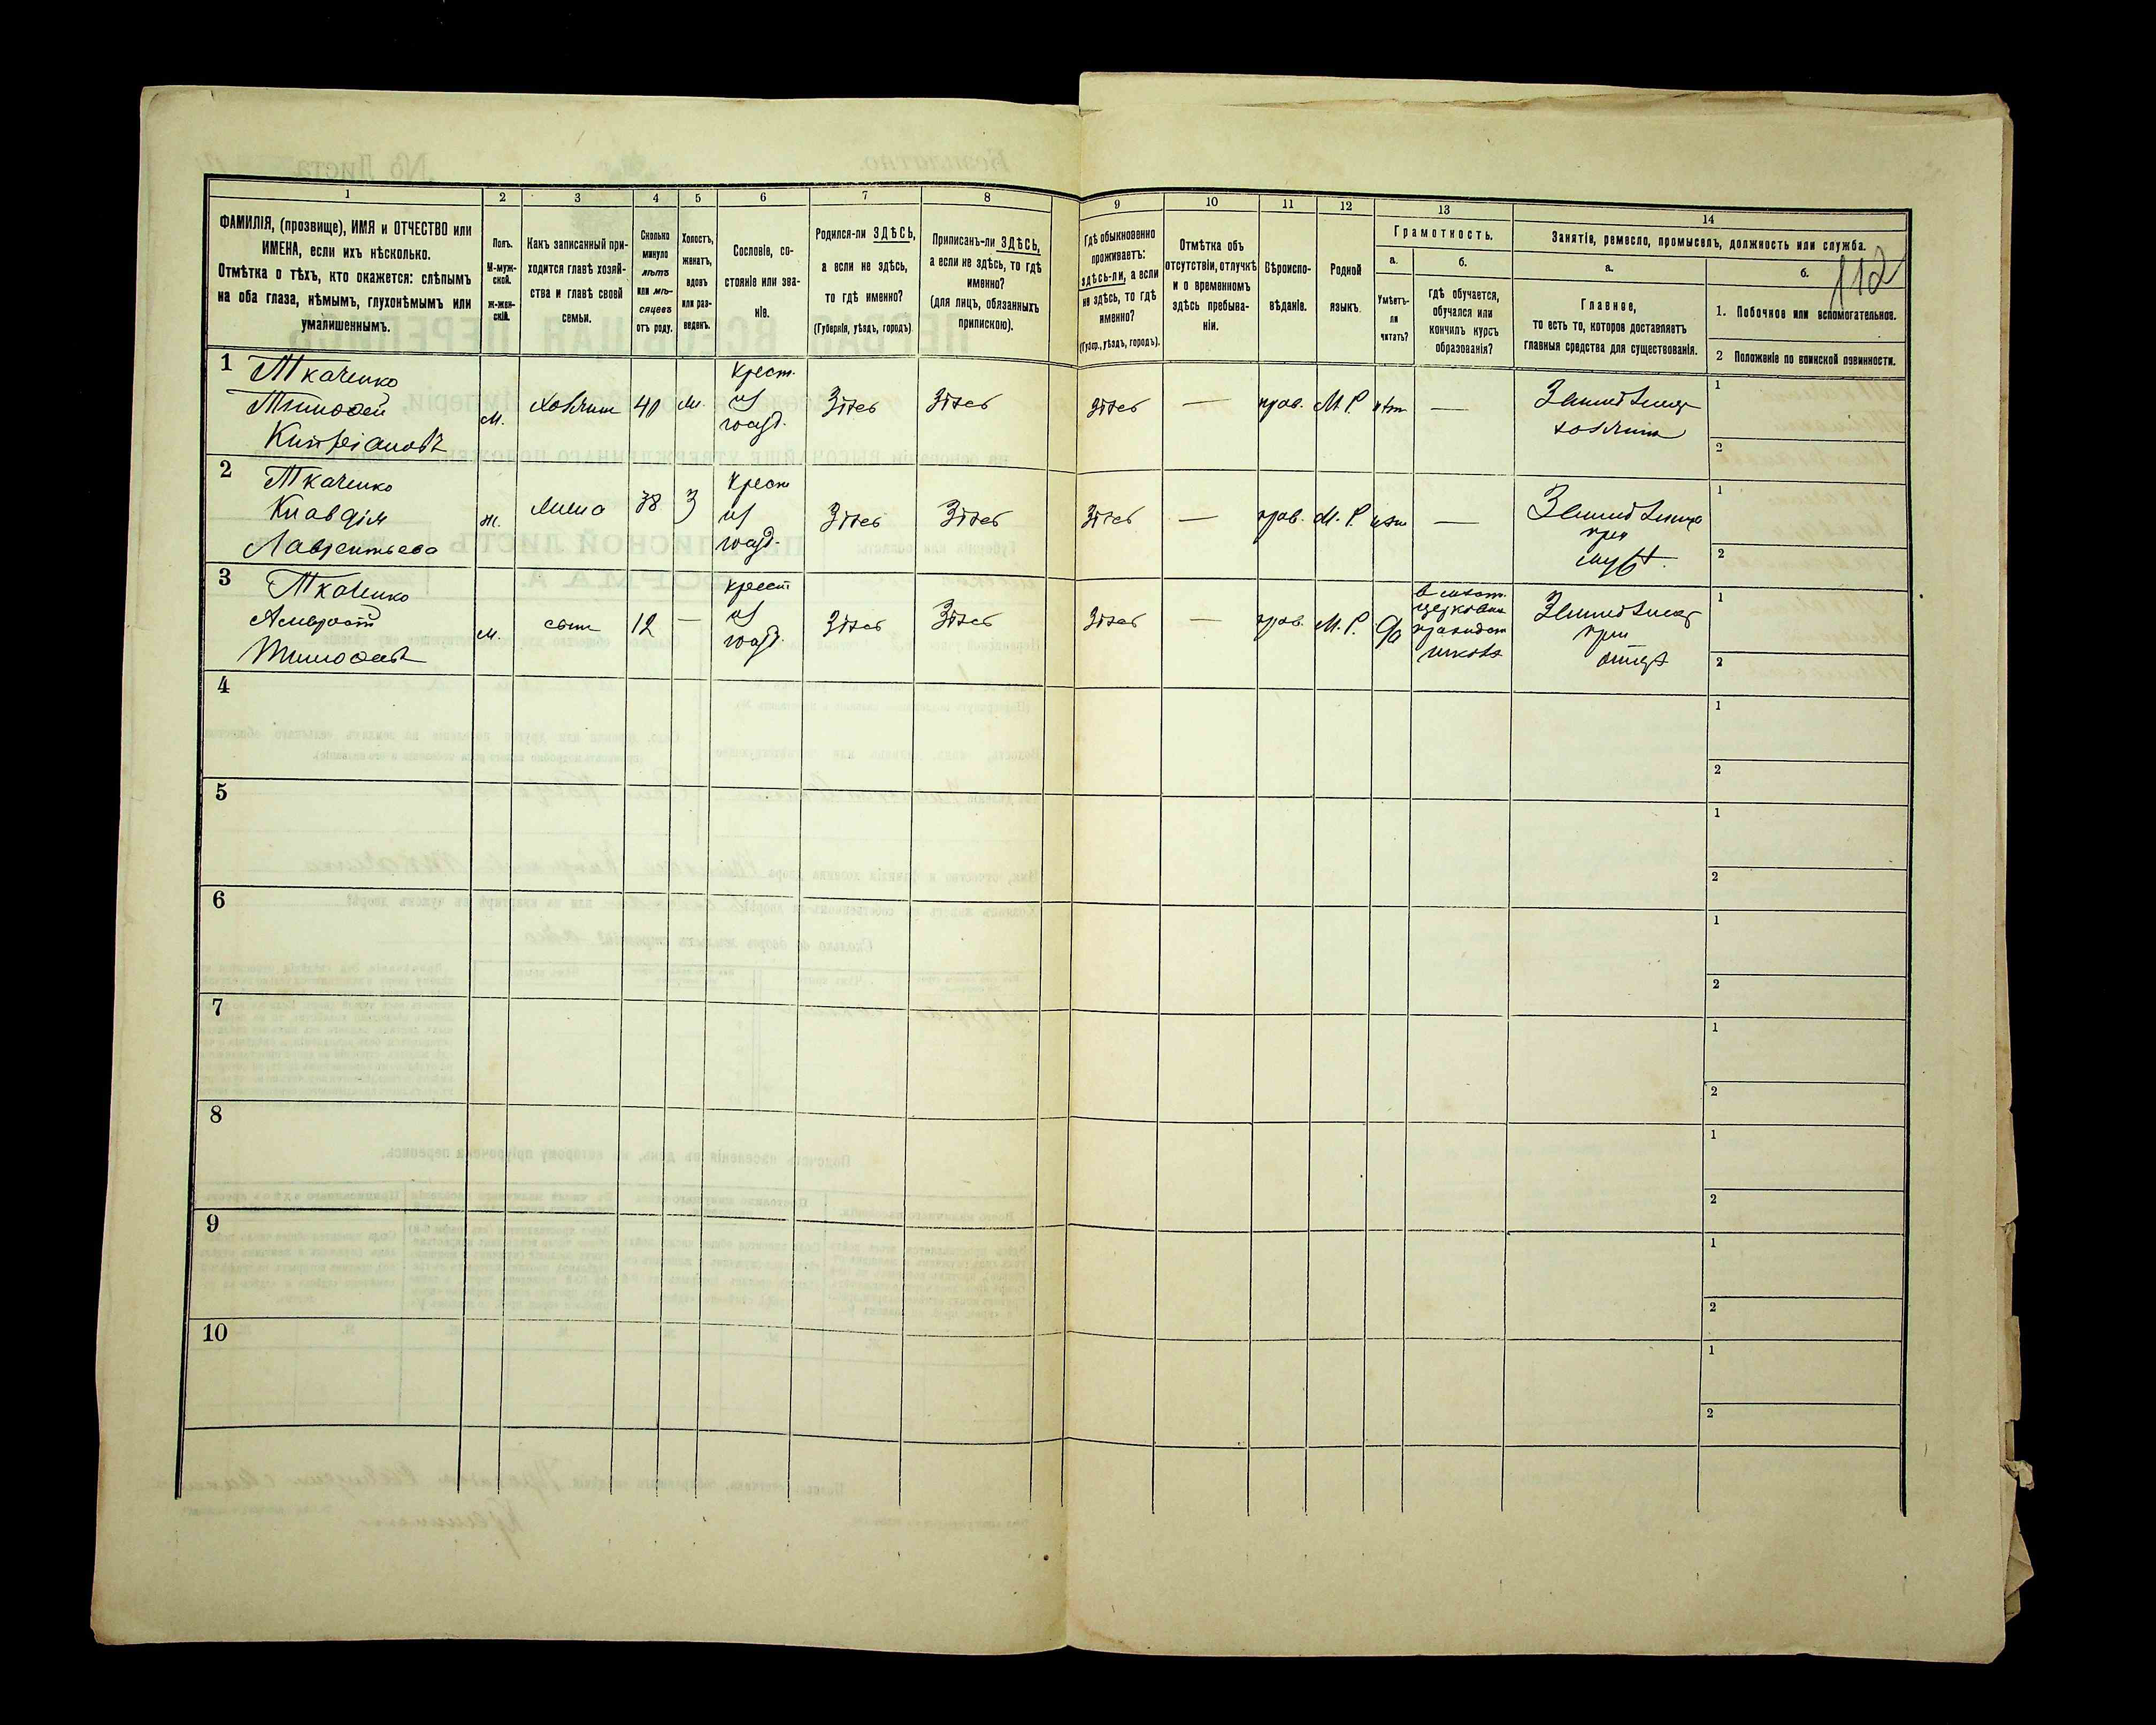 1 2 3 4 5 6 7 8 9 10 11 12 13 14
ФАМИЛІЯ, (прозвище), ИМЯ и ОТЧЕСТВО или
ИМЕНА, если ихъ нѣсколько.
Отмѣтка о тѣхъ, кто окажется: слѣпымъ
на оба глаза, нѣмымъ, глухонѣмымъ или
умалишеннымъ.
Полъ.
М-муж-
ской.
ж-жен-
скій.
Какъ записанный при-
ходится главѣ хозяй-
ства и главѣ своей
семьи.
Сколько
минуло
лѣтъ
или мѣ-
сяцевъ
отъ роду.
Холостъ,
женатъ,
вдовъ
или раз-
веденъ.
Сословіе, со-
стояніе или зва-
ніе.
Родился-ли ЗДѢСЬ,
а если не здѣсь,
то гдѣ именно?
(Губернія, уѣздъ, городъ)
Приписанъ-ли ЗДѢСЬ,
а если не здѣсь, то гдѣ
именно?
(для лицъ, обязанныхъ
припискою).
Гдѣ обыкновенно
проживаетъ:
здѣсь-ли, а если
не здѣсь, то гдѣ
именно?
(Губер., уѣздъ, городъ).
Отмѣтка объ
отсутствіи, отлучкѣ
и о временномъ
здѣсь пребыва-
ніи.
Вѣроиспо-
вѣданіе.
Родной
языкъ.
Грамотность.
а.
Умѣетъ-
ли
читать?
б.
гдѣ обучается,
обучался или
кончилъ курсъ
образованія?
Занятіе, ремесло, промыселъ, должность или служба.
а.
Главное,
то есть то, которое доставляетъ
главныя средства для существованія.
б.
112
1. Побочное или вспомогательное.
2 Положеніе по воинской повинности.
1 Ткаченко
Тимофей
Кипріановъ
м.
хозяин
40
крест.
из
госуд.
Здѣсь
Здѣсь
здѣсь
—
прав.
М. Р.
нѣт
—
Земледѣлец
хозяин
1
2
2 Ткаченко
Клавдія
Лаврентьева
ж.
жена
38
З
крест
из
госуд.
Здѣсь
Здѣсь
Здѣсь
—
прав.
М. Р.
нѣт
—
при
мужѣ.
1
2
3 Ткаченко
Тимофеев
м.
сын
12
—
крест
из
госуд.
Здѣсь
Здѣсь
Здѣсь
—
прав.
М. Р.
да
церковно
приходск
школѣ
Земледѣлец
при
отцѣ
1
2
4
1
2
5
1
2
6
1
2
7
1
2
8
1
2
9
1
2
10
1
2